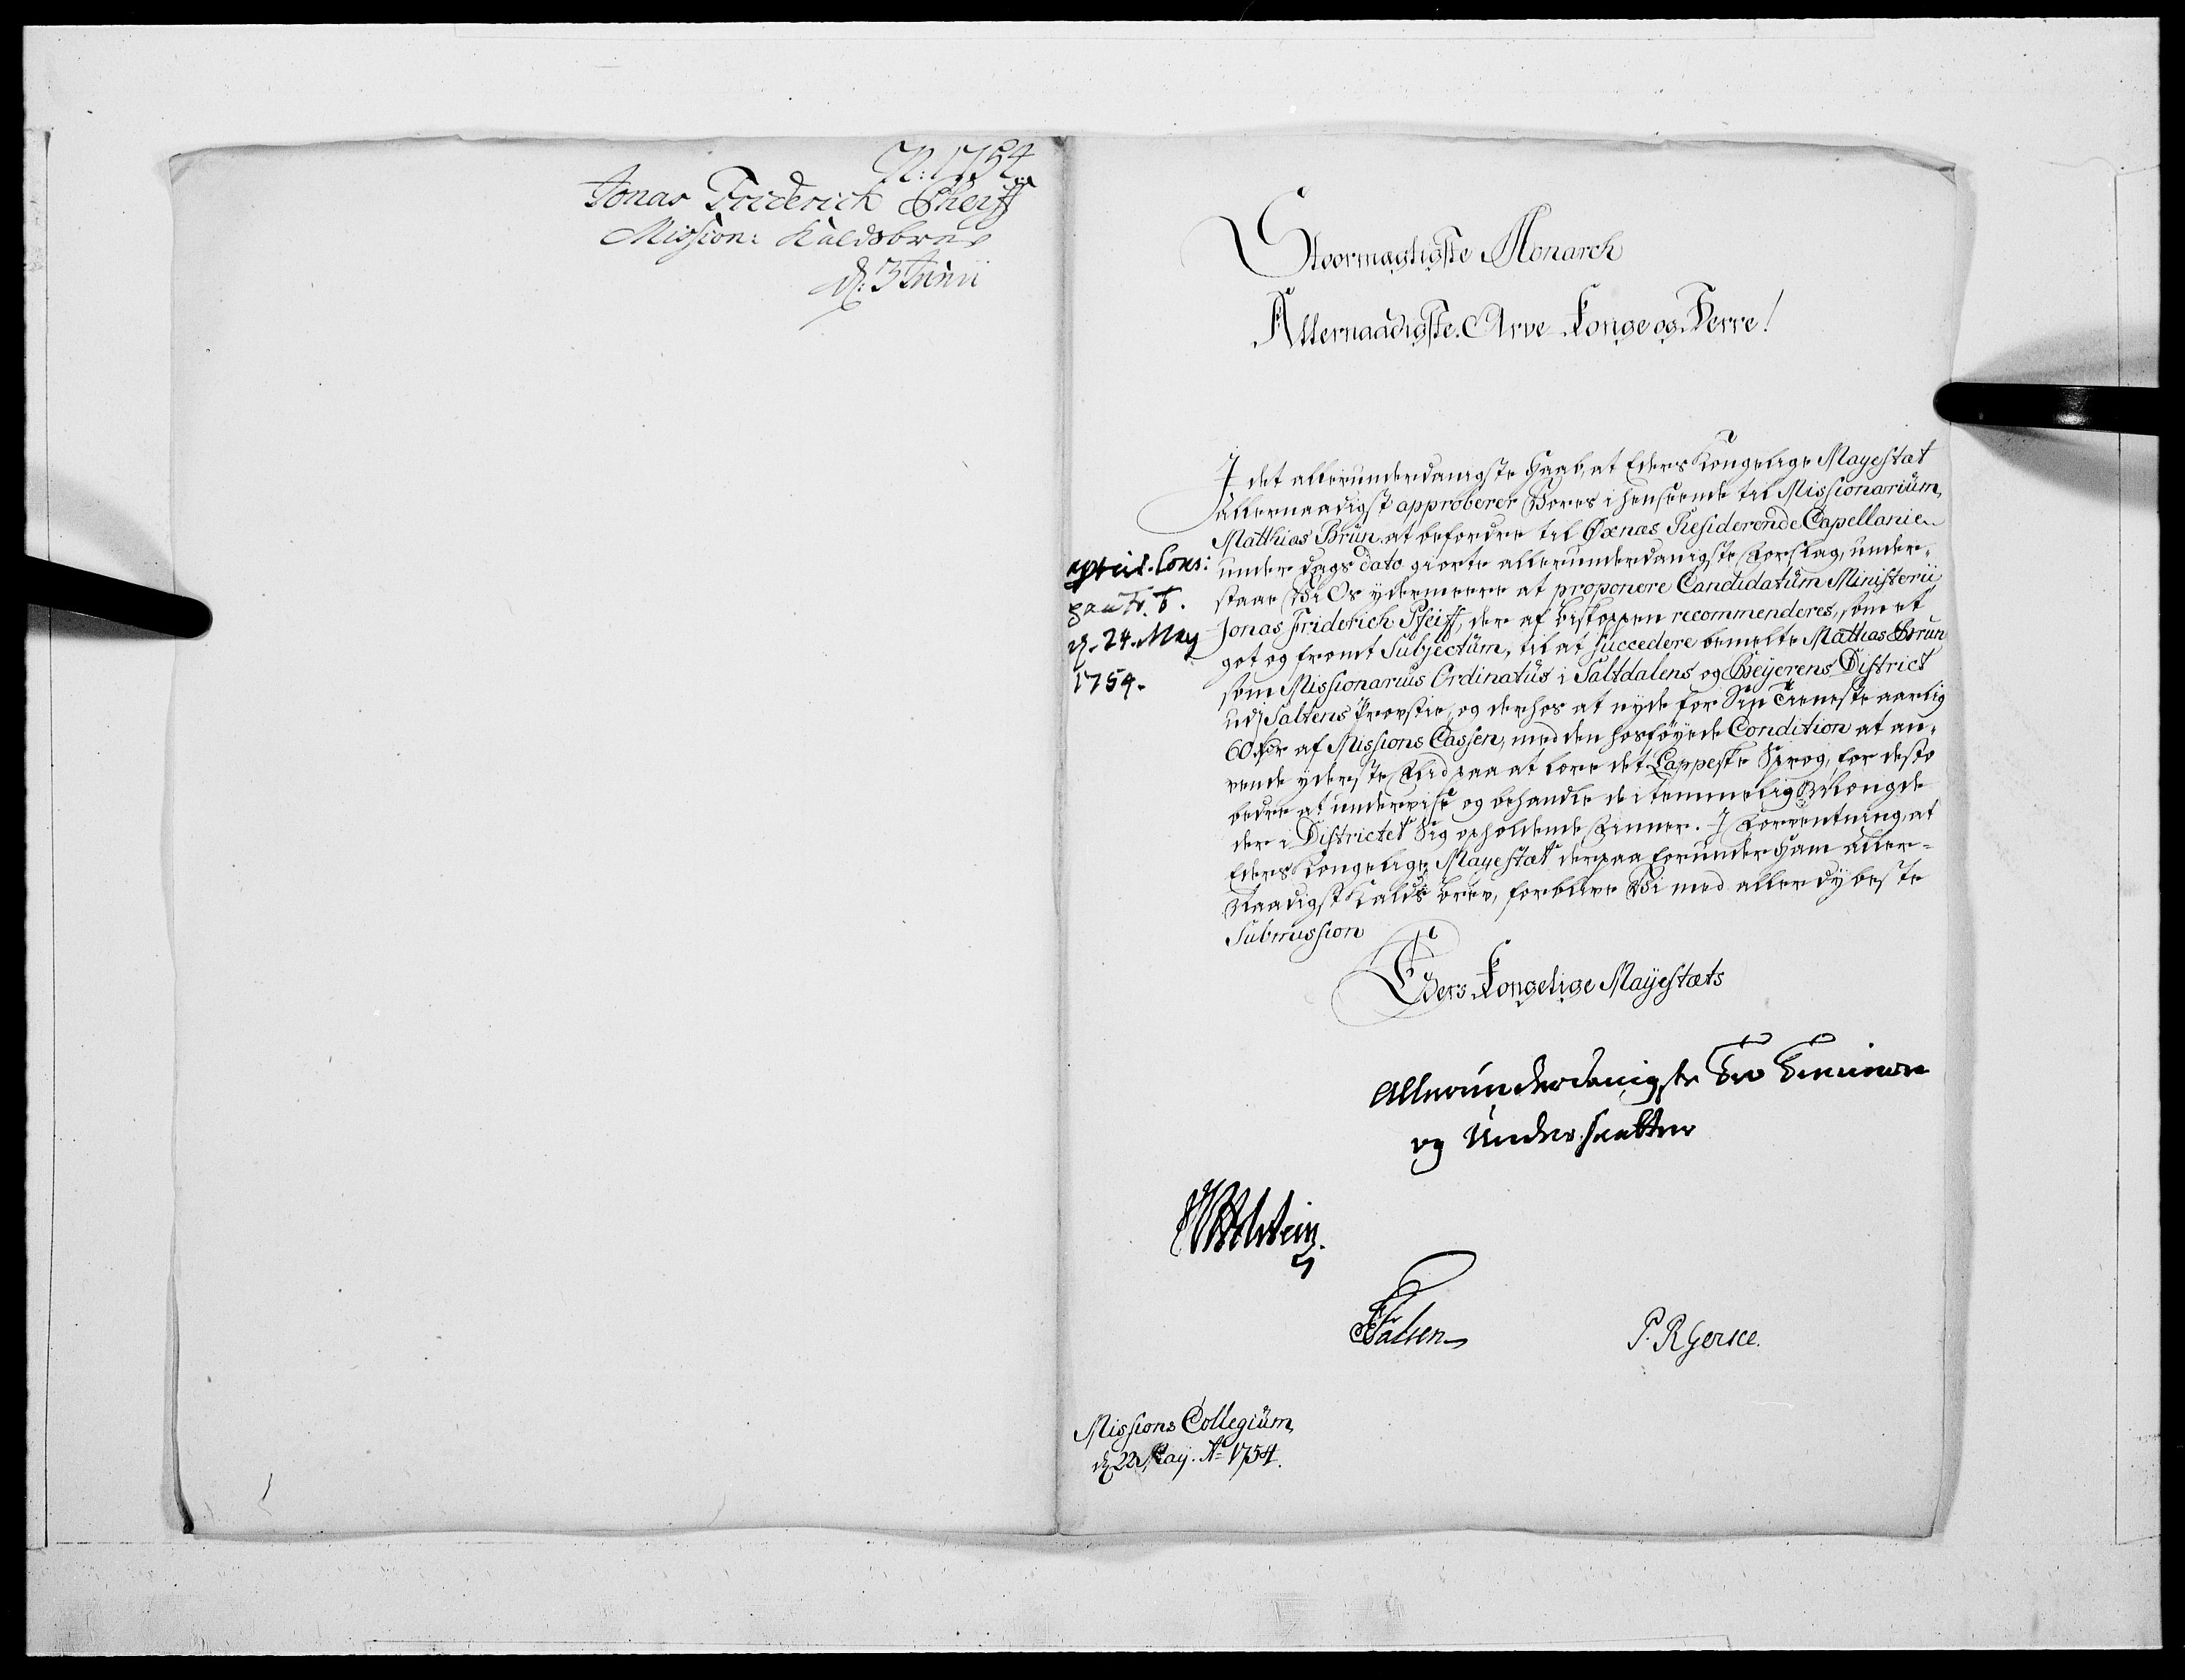 N: 1754
Jonas Friderich Pheiff
Mission: Kaldsbrev
d: 3 Junii
Stoormægtigste Monarch
Allernaadigste Arve Konge og Herre!
I det allerunderdanigste Haab, at Eders Kongelige Mayestæt
allernaadigst approberer Vores i henseende til Missionarium,
Matthias Brun at befordre til Øxnæs Residerende Capellanie
under dags dato giorte allerunderdanigste Forslag, under-
staae Vi Os ydermeere at proponere Candidatum Ministerii
Jonas Friderich Pfeiff, der af Biskoppen recommenderes, som et
got og fromt Subjectum, til at succedere bemelte Mathias Brun
som Missionarius Ordinatus i Saltdalens og Beyerens District
udj Saltens Provstie, og derhos at nyde for Sin Tieneste aarlig
60 Rdr af Missions Cassen, med den hosføyede Condition at an-
vende yderste Flid paa at lære det Lappeske Sprog, for desto
bedre at undervise og behandle de i temmelig Mængde
der i Districtet sig opholdende Finner. I Forventning, at
Eders Kongelige Mayestæt derpaa forunder Ham aller-
Naadigst Kalds brev, forblive Vi med allerdybeste
Submission
Eders Kongelige Mayestæts
Allerunderdanigste Troe Tienere
og Undersaatter
d. 24. May
1754.
JLHolstein
Falsen
P. R Gerke.
Missions Collegium,
d 22 May. Ao 1754.